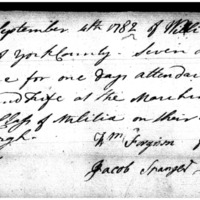 September 4th 1782 of Willi
of York County Seven
e for one days attendan
nd Fife at the Marchin
Class of Militia on their
rgh.
Wm Forgison
Jacob Spangler